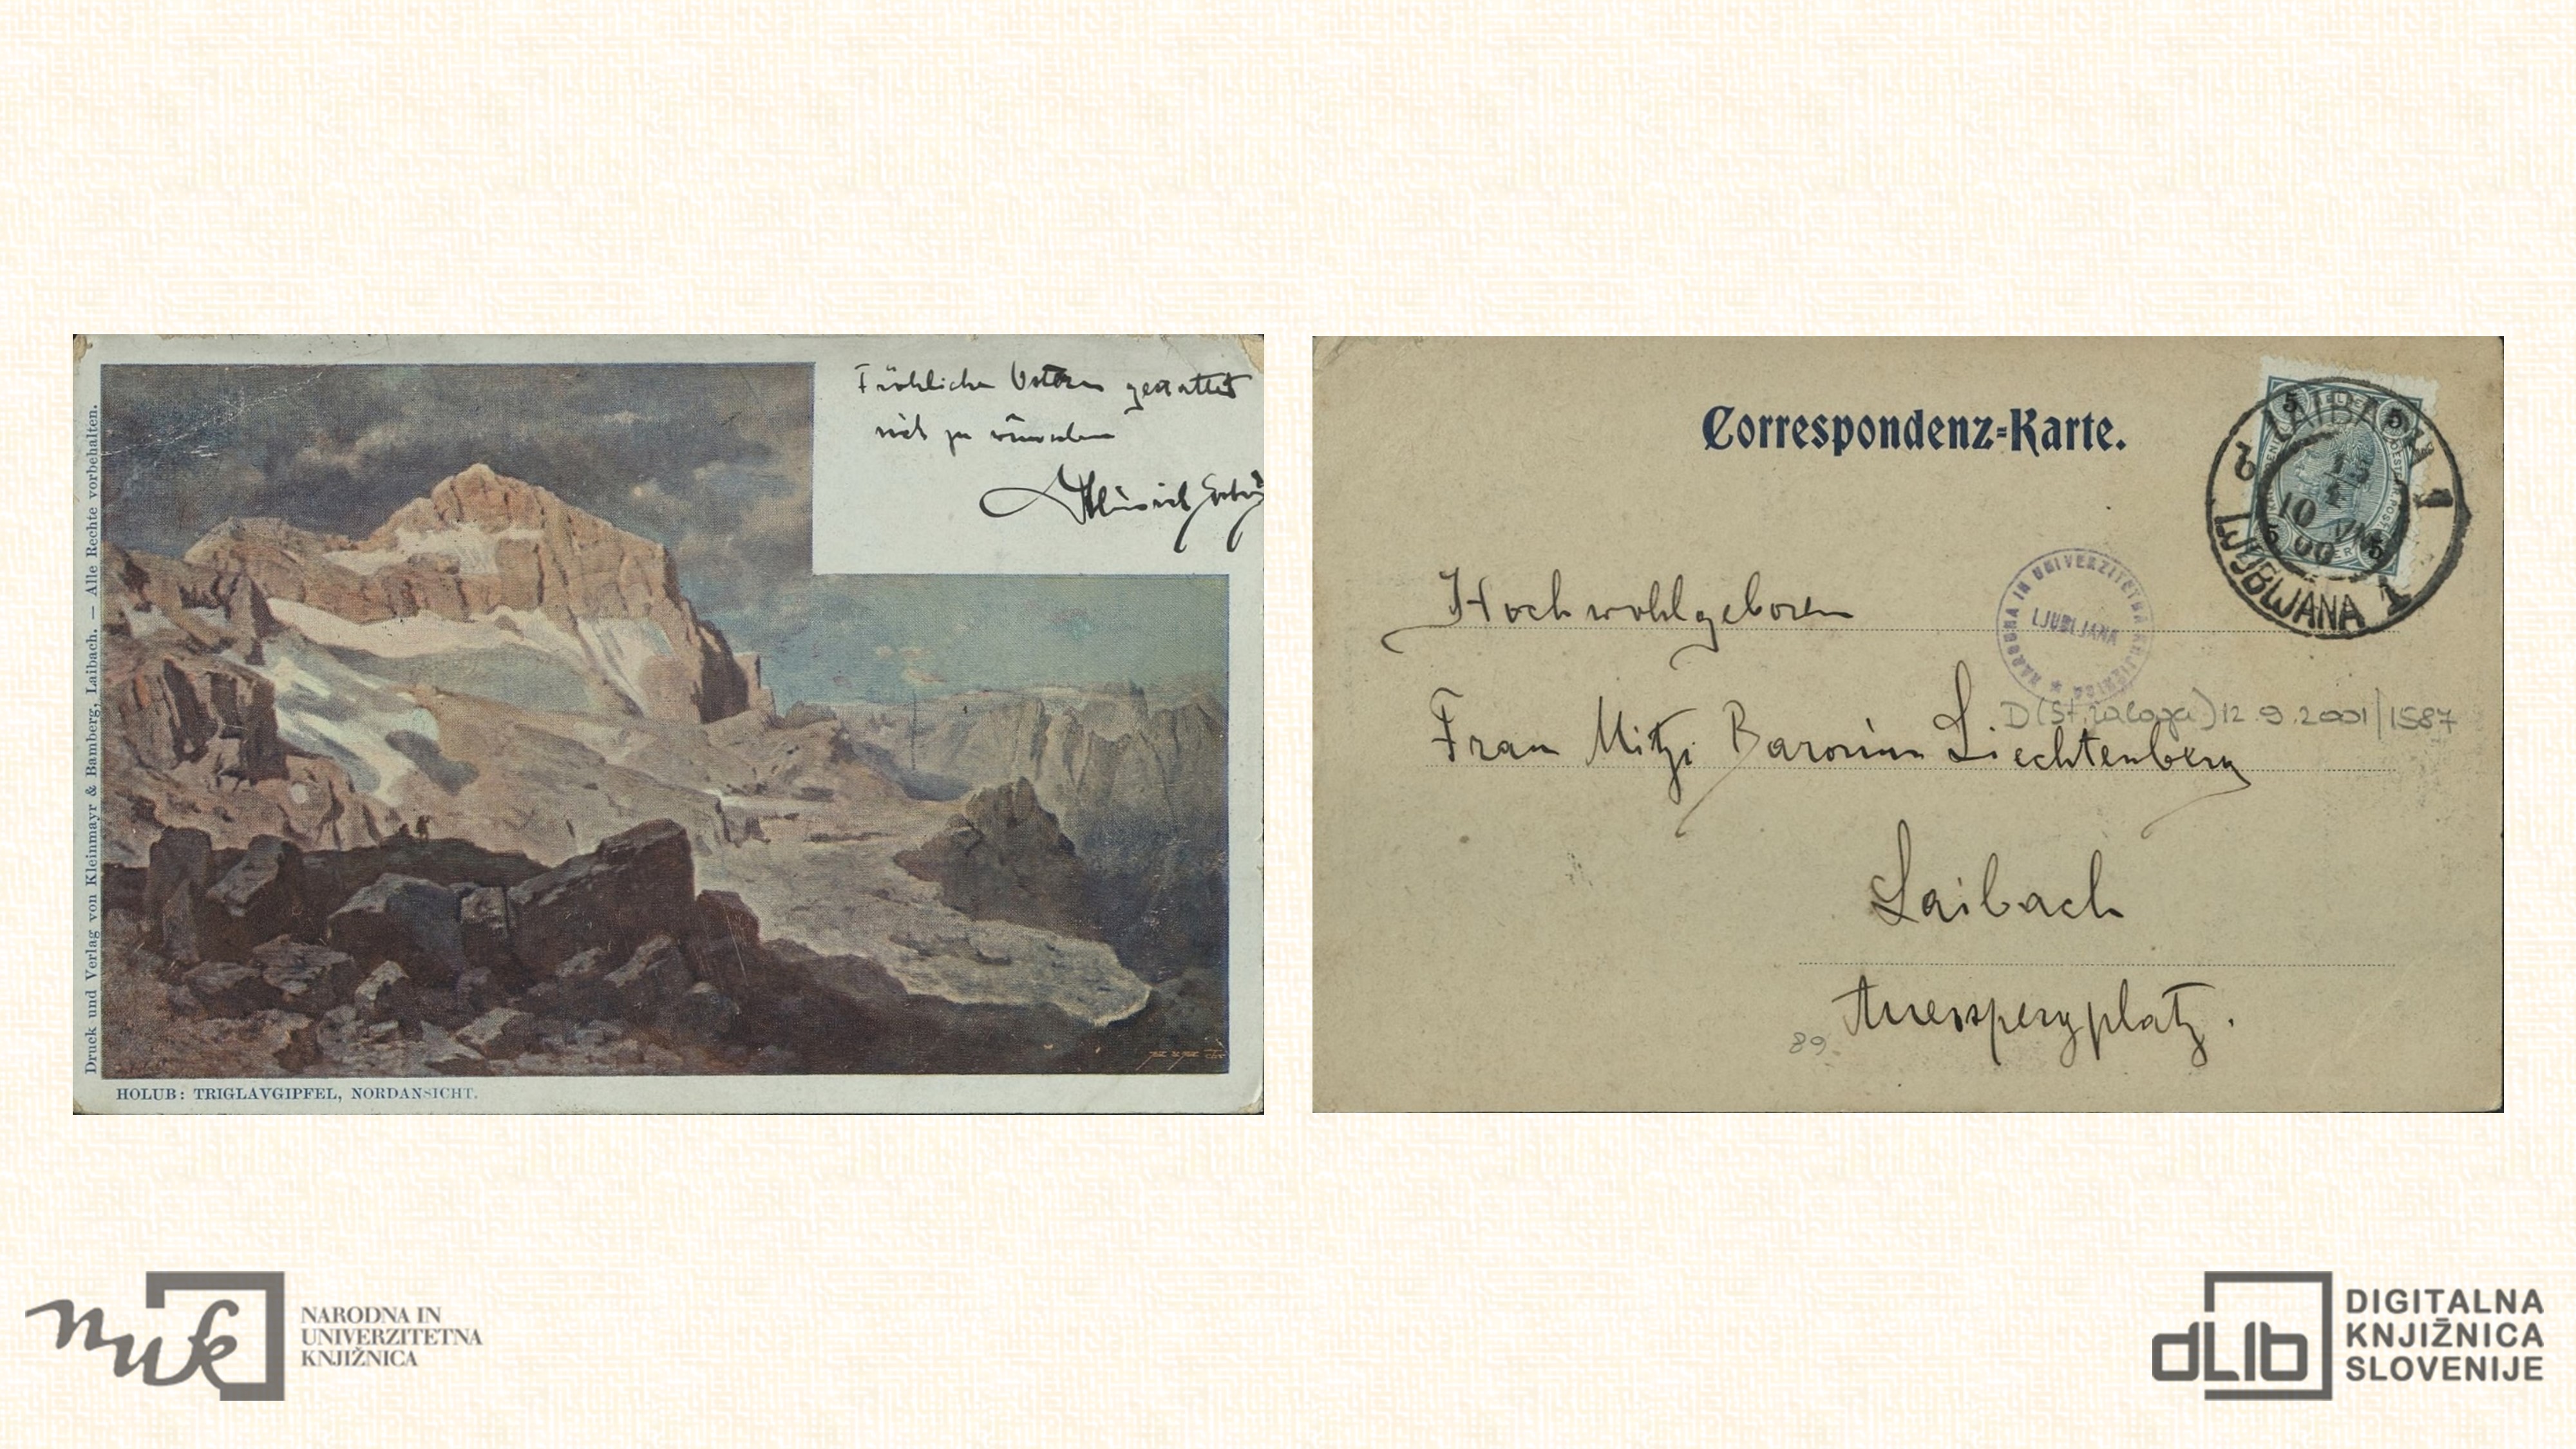 Fröhliche Ostern gestattet
sich zu wünschen
Heinrich
Druck und Verlag von Kleinmayr & Bamberg, Laibach. — Alle Rechte vorbehalten.
HOLUB: TRIGLAVGIPFEL, NORDANSICHT.
Correspondenz-Karte.
LAIBACH
10 VM
00
LJUBLJANA 1
5 5
5 5
NARODNA IN UNIVERZITETNA KNJIŽNICA
LJUBLJANA
Hochwohlgeboren
D(st. zaloga) 12.9.2001/1587
Frau Mitzi Baronin Liechtenberg
Laibach
Auerspergplatz.
89
nuk
NARODNA IN
UNIVERZITETNA
KNJIŽNICA
dLib
DIGITALNA
KNJIŽNICA
SLOVENIJE